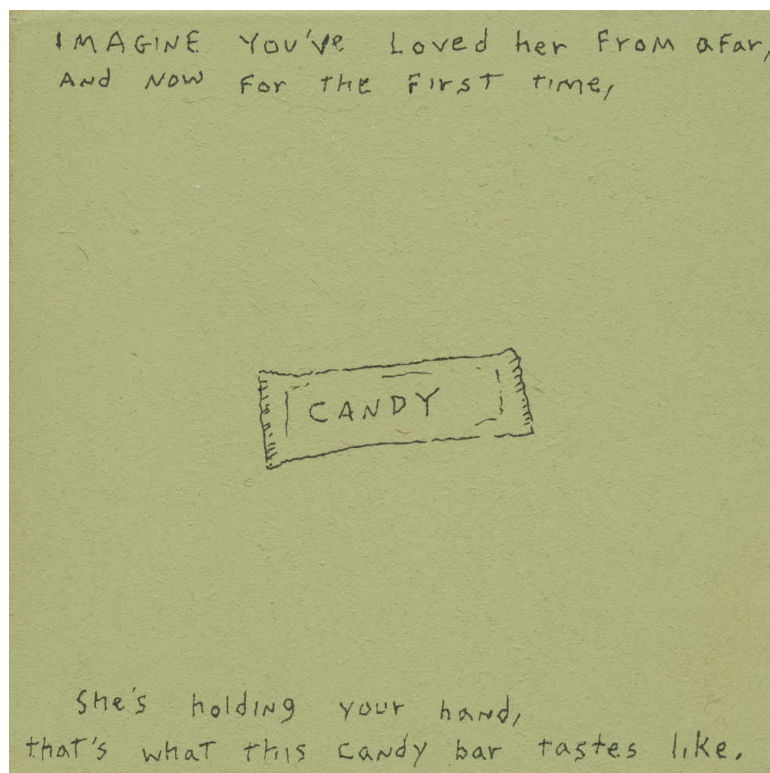 IMAGINE YOU'VE Loved her From aFar,
And NOW For the First time,
CANDY
She's holding your hand,
that's what this candy bar tastes like.